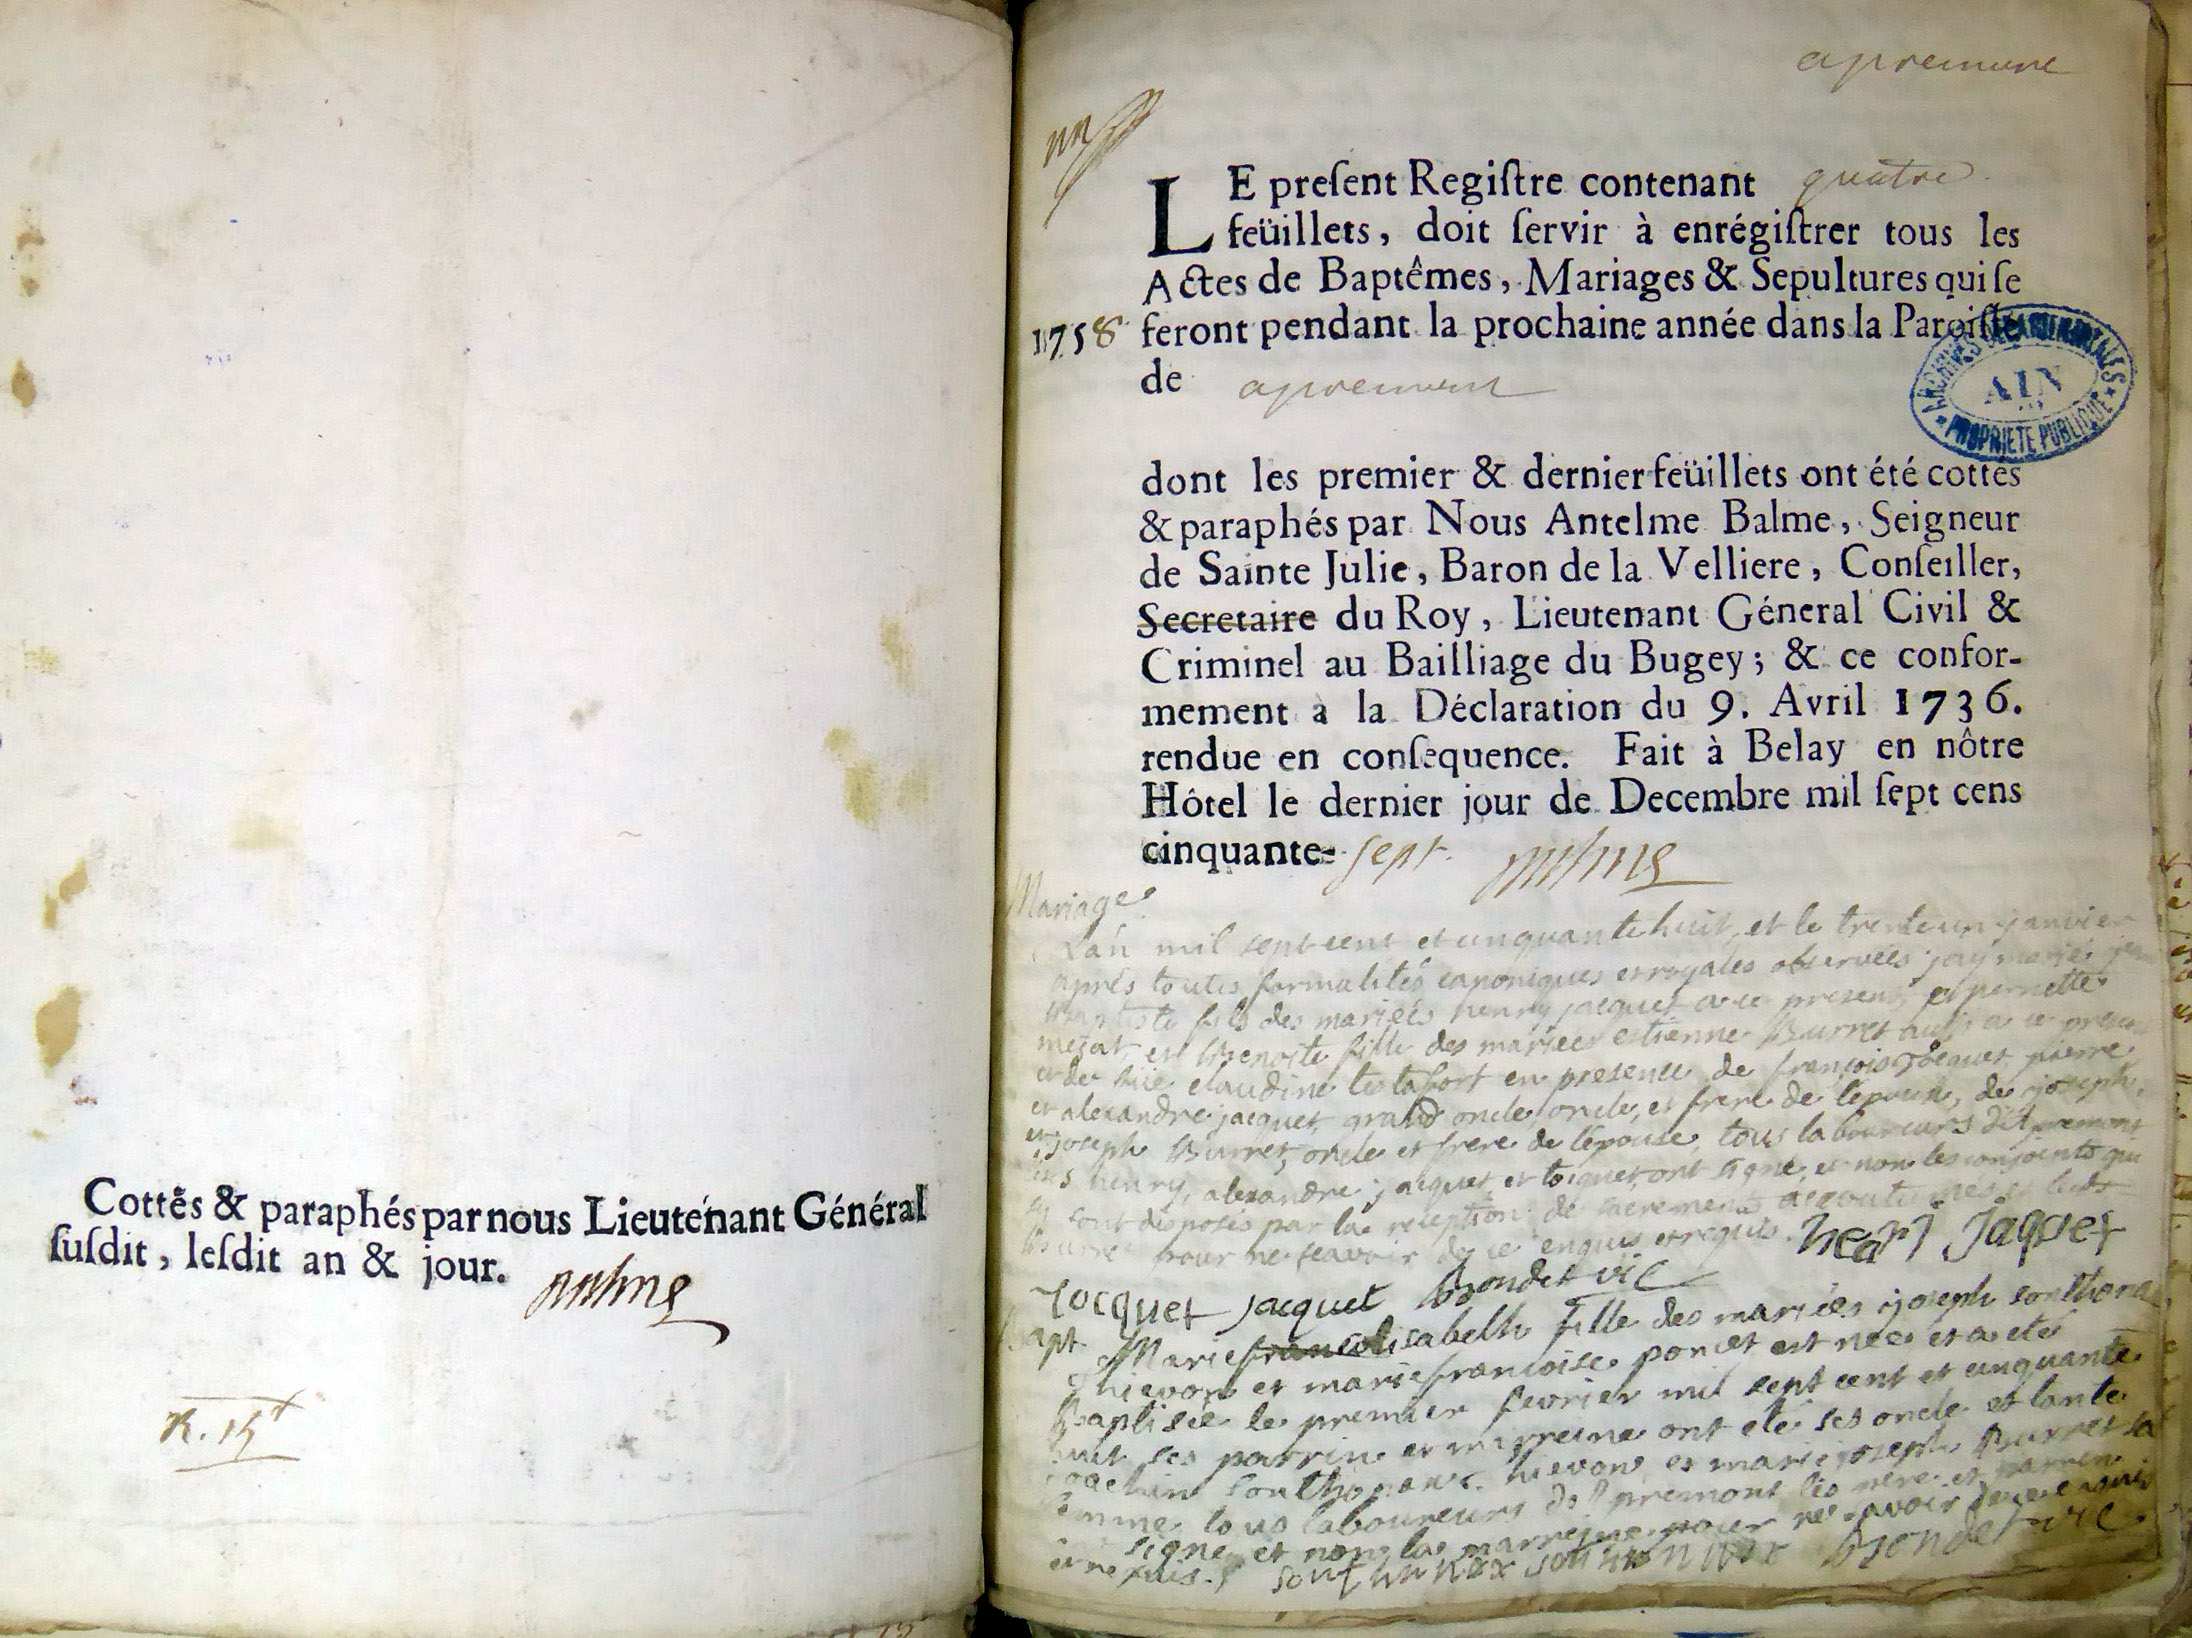 Cottés & paraphés par nous Lieutenant Général
ſuſdit, leſdit an & jour.
apremont
LE preſent Regiſtre contenant quatre
feüillets, doit ſervir à enrégiſtrer tous les
Actes de Baptêmes, Mariages & Sepultures qui ſe
1758 feront pendant la prochaine année dans la Paroiſſe
de apremont
ARCHIVES DÉPARTEMENTALES
AIN
PROPRIETE PUBLIQUE
dont les premier & dernier feüillets ont été cottés
& paraphés par Nous Antelme Balme, Seigneur
de Sainte Julie, Baron de la Velliere, Conſeiller,
Secretaire du Roy, Lieutenant Géneral Civil &
Criminel au Bailliage du Bugey; & ce confor-
mement à la Déclaration du 9. Avril 1736.
rendue en conſequence. Fait à Belay en nôtre
Hôtel le dernier jour de Decembre mil ſept cens
cinquante- sept.
Mariage
Lan mil sept cent et cinquante huit, et le trente un janvier
après toutes formalités canoniques et royales observées jay marié
baptiste fils des mariés henry jacquet a ce present, et pernette
et benoite fille des mariées estienne Burret aussi a ce
et de claudine en presence de françois Jocquet, pierre
et alexandre jacquet, grand oncle, oncle, et frere de lepoux, de joseph
et joseph Burret, oncle et frere de lépouse, tous laboureurs dApremont
les henry, alexandre jacquet et ont signé, et non les conjoints qui
sy sont disposés par la reception de sacrements accoutumés
Burret pour ne scavoir de ce enquis et requis. henri jaquet
Jocquet jacquet Brondet vic
Bapt. Marie francelisabeth fille des mariés joseph southonax
hievon et marie francoise poncet est née et a eté
Baptisée le premier fevrier mil sept cent et cinquante
huit ses parrin et marreine ont eté ses oncle et tante
joachin southonax hievon et marie joseph Burret sa
femme tous laboureurs dApremont les pere et parrein
signé et non la marreine pour ne savoir de ce enquis
et requis. Brondet vic